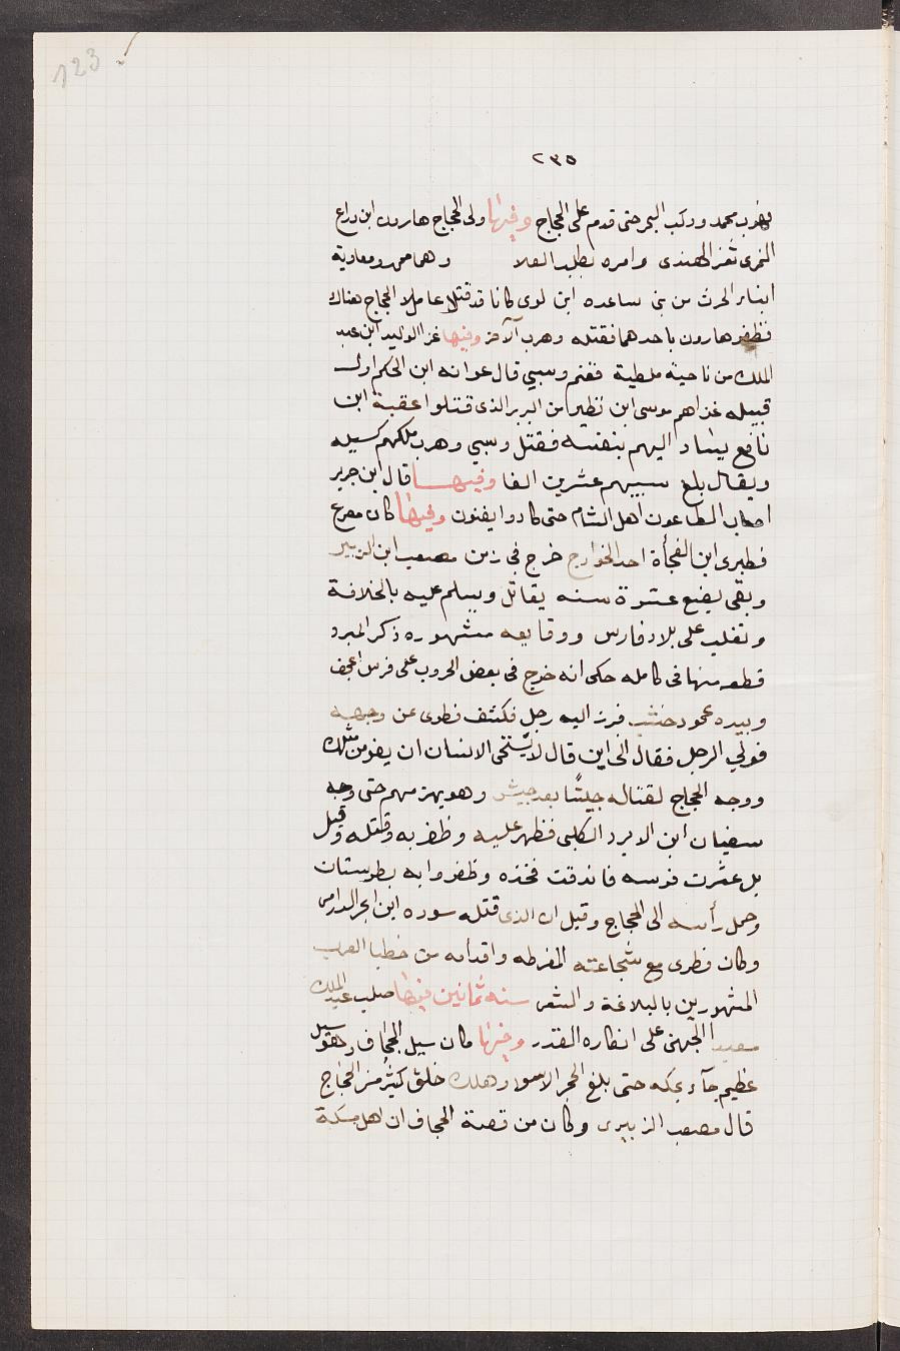 123
٢٣٥
فهرب محمد وركب البحر حتى قدم على الحجاج وفيها ولى الحجاج هارون ابن دراع
النمرى ثغر الهندى وامره بطلب العلا وهما محمد ومعاوية
ابناء الحرث من بنى ساعده ابن لوى كانا قد قتلا عاملا الحجاج هناك
فظفر هارون باحدهما فقتله وهرب الآخر وفيها غزا الوليد ابن عبد
الملك من ناحية ملطية فغنم وسبي قال عوانه ابن الحكم اول
قبيله غزاهم موسى ابن نظير من البربر الذى قتلوا عقبة ابن
نافع يسار اليهم بنفسه فقتل وسبي وهرب ملكهم كسيله
ويقال بلغ سبيهم عشرين الفا وفيها قال ابن جرير
اصاب الطاعون اهل الشام حتى كادوا يفنون وفيها كان مصرع
قطرى ابن الفجأة احد الخوارج خرج فى زمن مصعب ابن الزبير
وبقى بضع عشرة سنه يقاتل ويسلم عليه بالخلافة
وتغلب على بلاد فارس ووقايعه مشهوره ذكر المبرد
قطعه منها فى كامله حكى انه خرج فى بعض الحروب على فرس اعجف
وبيده عمود خشب فبرز اليه رجل فكشف قطرى عن وجهه
فولي الرجل فقال الى اين قال لا يستحى الانسان ان يفر من مثلك
ووجه الحجاج لقتاله جيشا بعد جيش وهو يهزمهم حتى وجه
سفيان ابن الابرد الكلبى فظهر عليه وظفر به وقتله وقيل
بل عثرت فرسه فاندقت فخذه وظفروا به بطبرستان
وحمل رأسه الى الحجاج وقيل ان الذى قتله سوره ابن ابجر الدرامى
وكان قطرى مع شجاعته المفرطه واقدامه من خطبا العرب
المشهورين بالبلاغة والشعر سنه ثمانين فيها صلب عبد الملك
معبدا الجهنى على انكاره القدر وفيها كان سيل الجحاف وهو سيل
عظيم جآء بمكه حتى بلغ الحجر الاسود وهلك خلق كثير من الحجاج
قال مصعب الزبيرى وكان من قصة الجحاف ان اهل مكة